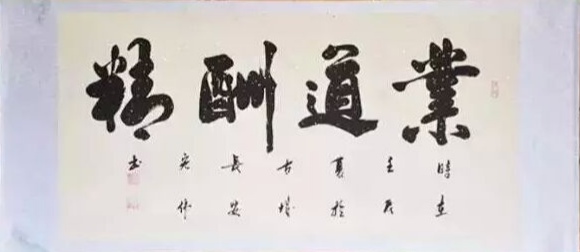 業道酬精
時在
壬辰
夏於
古城
長安
书